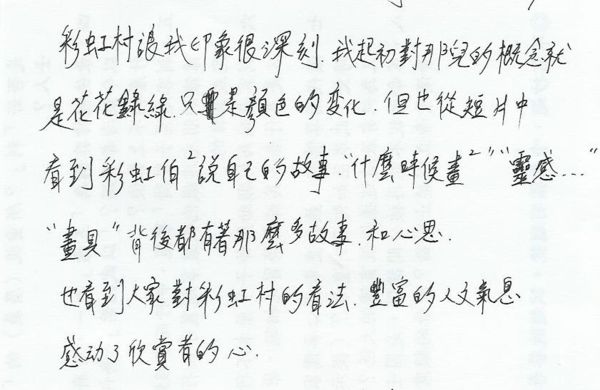 彩虹村浪我印象很深刻.我起初對那兒的概念就
是花花錄綠.只是顏色的变化.但也從短片中
看到彩虹伯²說自己的故事."什麼時候畫²""靈感..."
"畫具"背後都有著那麼多故事.和心思.
也看到大家對彩虹村的看法.豐富的人文氣息
感动了欣賞者的心.